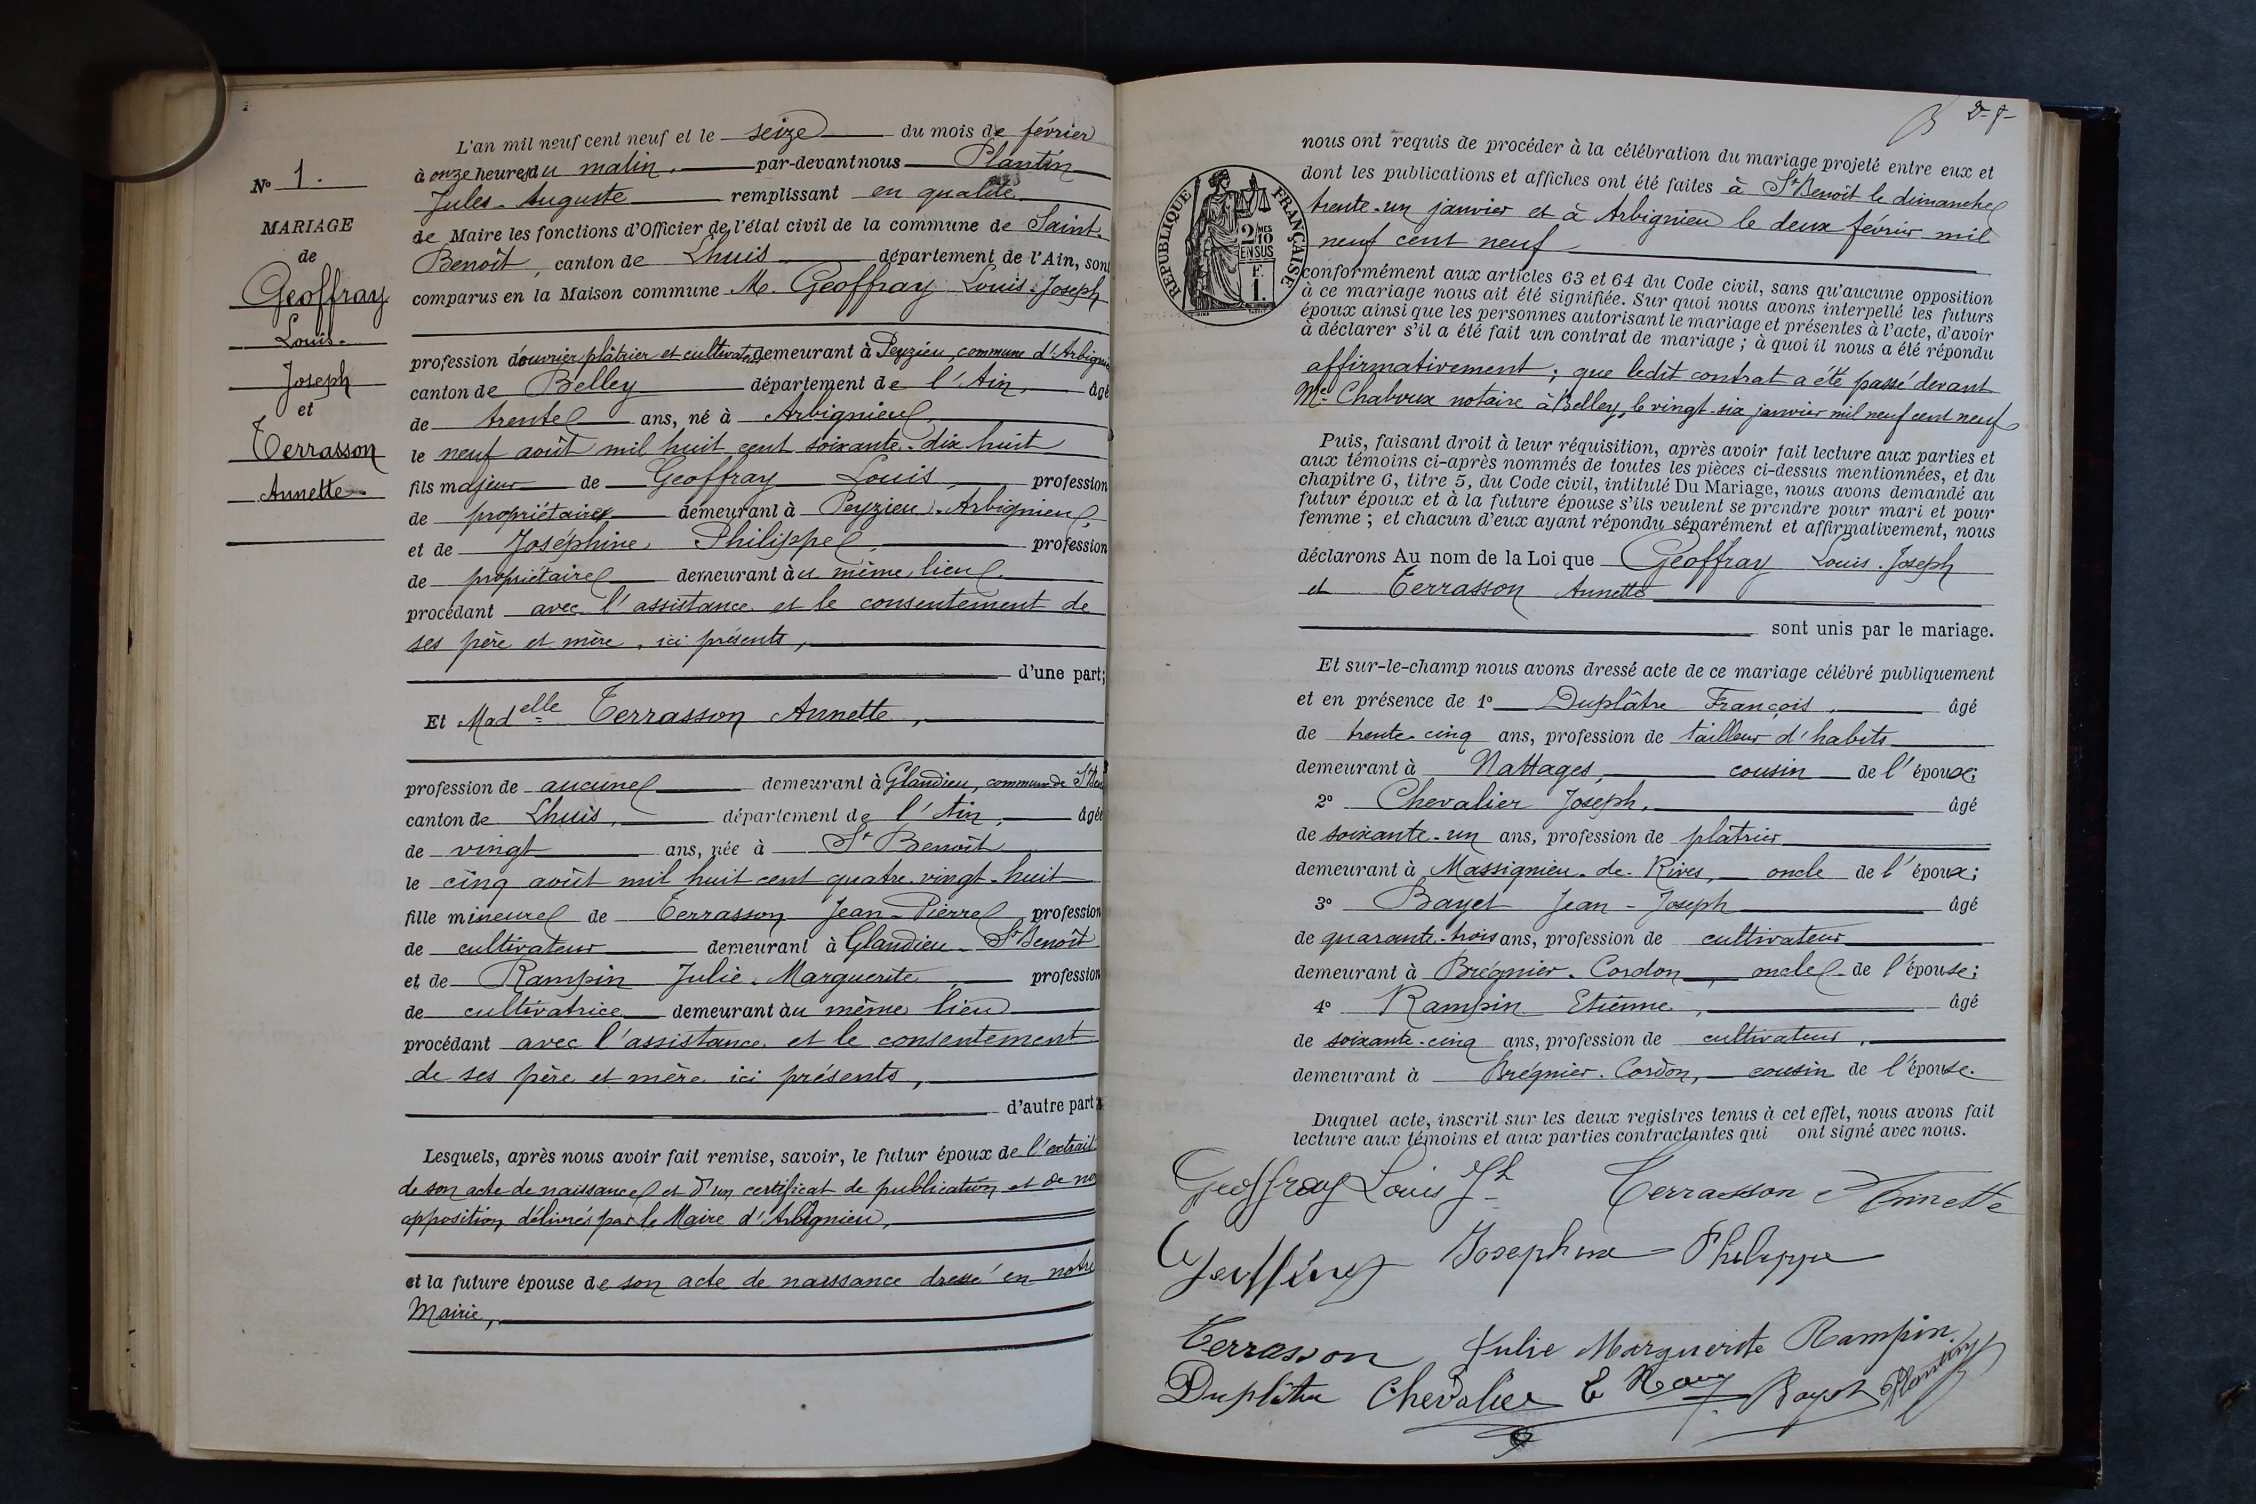 N° 1.
MARIAGE
de
Geoffray
Louis-
Joseph
et
Terrasson
Annette
L'an mil neuf cent neuf et le seize du mois de février
à onze heures du matin, par-devant nous Plantin
Jules-Auguste remplissant en qualité
de Maire les fonctions d'Officier de l'état civil de la commune de Saint-
Benoît, canton de Lhuis département de l'Ain, sont
comparus en la Maison commune M. Geoffray Louis-Joseph
profession d'ouvrier plâtrier et cultivateur demeurant à Peyzieu, commune d'Arbignieu
canton de Belley département de l'Ain, âgé
de trente ans, né à Arbignieu
le neuf août mil huit cent soixante-dix huit
fils majeur de Geoffray Louis, profession
de propriétaire demeurant à Peyzieu-Arbignieu,
et de Joséphine Philippe, profession
de propriétaire demeurant au même lieu,
procédant avec l'assistance et le consentement de
ses père et mère, ici présents,
d'une part;
Et Madelle Terrasson Annette,
profession de aucune demeurant à Glandieu, commune de St
canton de Lhuis, département de l'Ain, âgée
de vingt ans, née à St Benoît
le cinq août mil huit cent quatre-vingt-huit
fille mineure de Terrasson Jean-Pierre profession
de cultivateur demeurant à Glandieu-St Benoît
et de Rampin Julie-Marguerite, profession
de cultivatrice demeurant au même lieu
procédant avec l'assistance et le consentement
de ses père et mère ici présents,
d'autre part
Lesquels, après nous avoir fait remise, savoir, le futur époux de l'extrait
de son acte de naissance et d'un certificat de publication et de non
opposition délivrés par le Maire d'Arbignieu,
et la future épouse de son acte de naissance dressé en notre
Mairie,
RÉPUBLIQUE FRANÇAISE
2 MES
10
EN SUS
F.
1.
nous ont requis de procéder à la célébration du mariage projeté entre eux et
dont les publications et affiches ont été faites à St Benoît le dimanche
trente-un janvier et à Arbignieu le deux février mil
neuf cent neuf
conformément aux articles 63 et 64 du Code civil, sans qu'aucune opposition
à ce mariage nous ait été signifiée. Sur quoi nous avons interpellé les futurs
époux ainsi que les personnes autorisant le mariage et présentes à l'acte, d'avoir
à déclarer s'il a été fait un contrat de mariage; à quoi il nous a été répondu
affirmativement; que ledit contrat a été passé devant
Me Chaboux notaire à Belley, le vingt-six janvier mil neuf cent neuf
Puis, faisant droit à leur réquisition, après avoir fait lecture aux parties et
aux témoins ci-après nommés de toutes les pièces ci-dessus mentionnées, et du
chapitre 6, titre 5, du Code civil, intitulé Du Mariage, nous avons demandé au
futur époux et à la future épouse s'ils veulent se prendre pour mari et pour
femme; et chacun d'eux ayant répondu séparément et affirmativement, nous
déclarons Au nom de la Loi que Geoffray Louis-Joseph
et Terrasson Annette
sont unis par le mariage.
Et sur-le-champ nous avons dressé acte de ce mariage célébré publiquement
et en présence de 1° Duplâtre François, âgé
de trente-cinq ans, profession de tailleur d'habits
demeurant à Nattages, cousin de l'époux;
2° Chevalier Joseph, âgé
de soixante-un ans, profession de plâtrier
demeurant à Massignieu-de-Rives, oncle de l'époux;
3° Bayet Jean-Joseph âgé
de quarante-trois ans, profession de cultivateur
demeurant à Brégnier-Cordon, oncle de l'épouse;
4° Rampin Etienne, âgé
de soixante-cinq ans, profession de cultivateur,
demeurant à Brégnier-Cordon, cousin de l'épouse.
Duquel acte, inscrit sur les deux registres tenus à cet effet, nous avons fait
lecture aux témoins et aux parties contractantes qui ont signé avec nous.
Geoffray Louis Jh Terrasson Annette
Geoffray Josephine Philippe
Terrasson Julie Marguerite Rampin
Duplâtre Chevalier Bayet Plantin